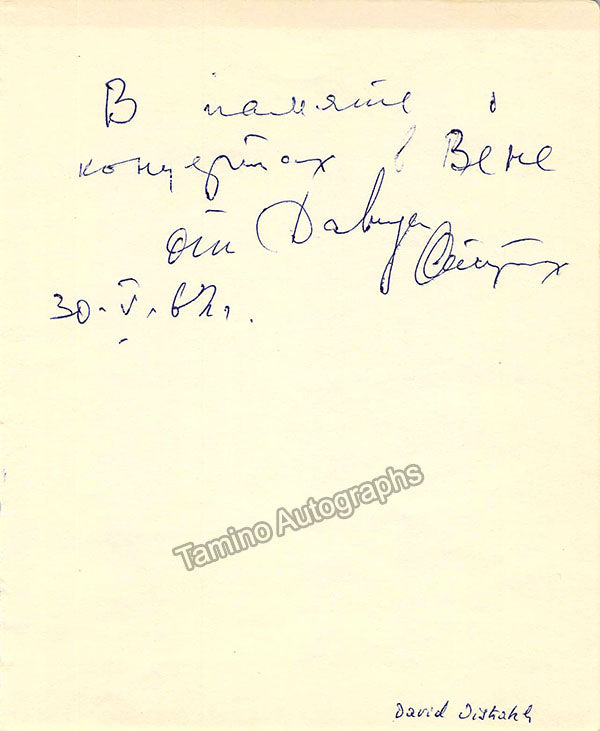 В память о
концертах в Вене
от Давида
Ойстрах
30.V.67г.
Tamino Autographs
David Oistrakh